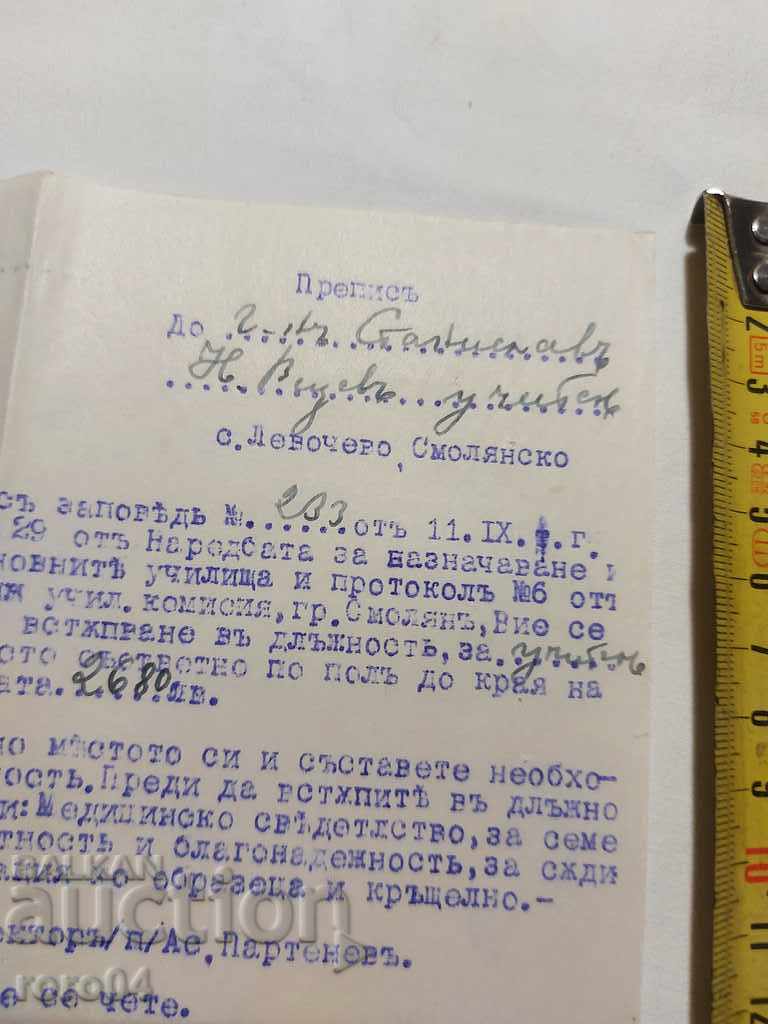 Преписъ
До г-нъ Станиславъ
Н. Вуцевъ учител
с. Левочево, Смолянско
съ заповѣдь №. 233 отъ 11.IX. г.
29 отъ Наредбата за назначаване и
новнитѣ училища и протоколъ №6 отъ
учил. комисия, гр. Смолянъ, Вие се
встѫпване въ длъжность, за учител
ото съответно по полъ до края на
ата. 2680 лв.
но мѣстото си и съставете необхо-
ность. Преди да встѫпитѣ въ длъжно
и: Медицинско свѣдетлство, за семе
тность и благонадежность, за сѫди
ация по образеца и кръщелно.-
екторъ/п/Ас. Партеневъ.
е се чете.
BALKAN
auction
roro04
2 3 4 5 6 7 8 9 10 11 12
5m